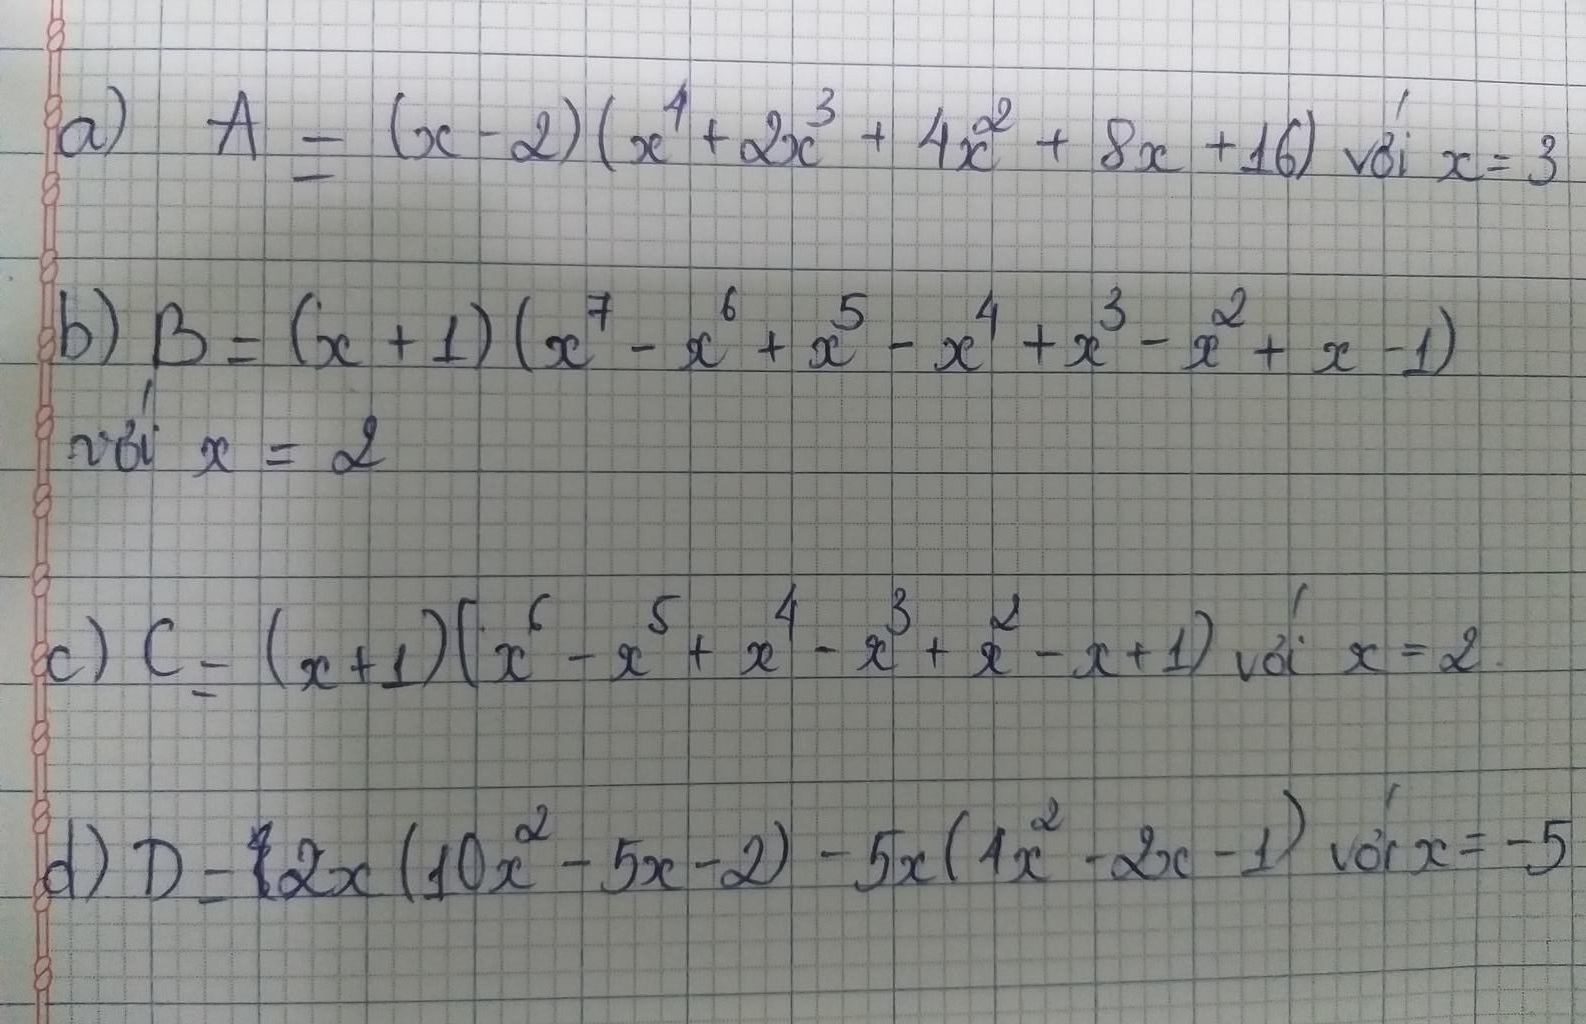 a) A = (x - 2)(x⁴ + 2x³ + 4x² + 8x + 16) với x = 3
b) B = (x + 1)(x⁷ - x⁶ + x⁵ - x⁴ + x³ - x² + x - 1)
với x = 2
c) C = (x + 1)(x⁶ - x⁵ + x⁴ - x³ + x² - x + 1) với x = 2.
d) D = 2x (10x² - 5x - 2) - 5x (4x² - 2x - 1) với x = -5